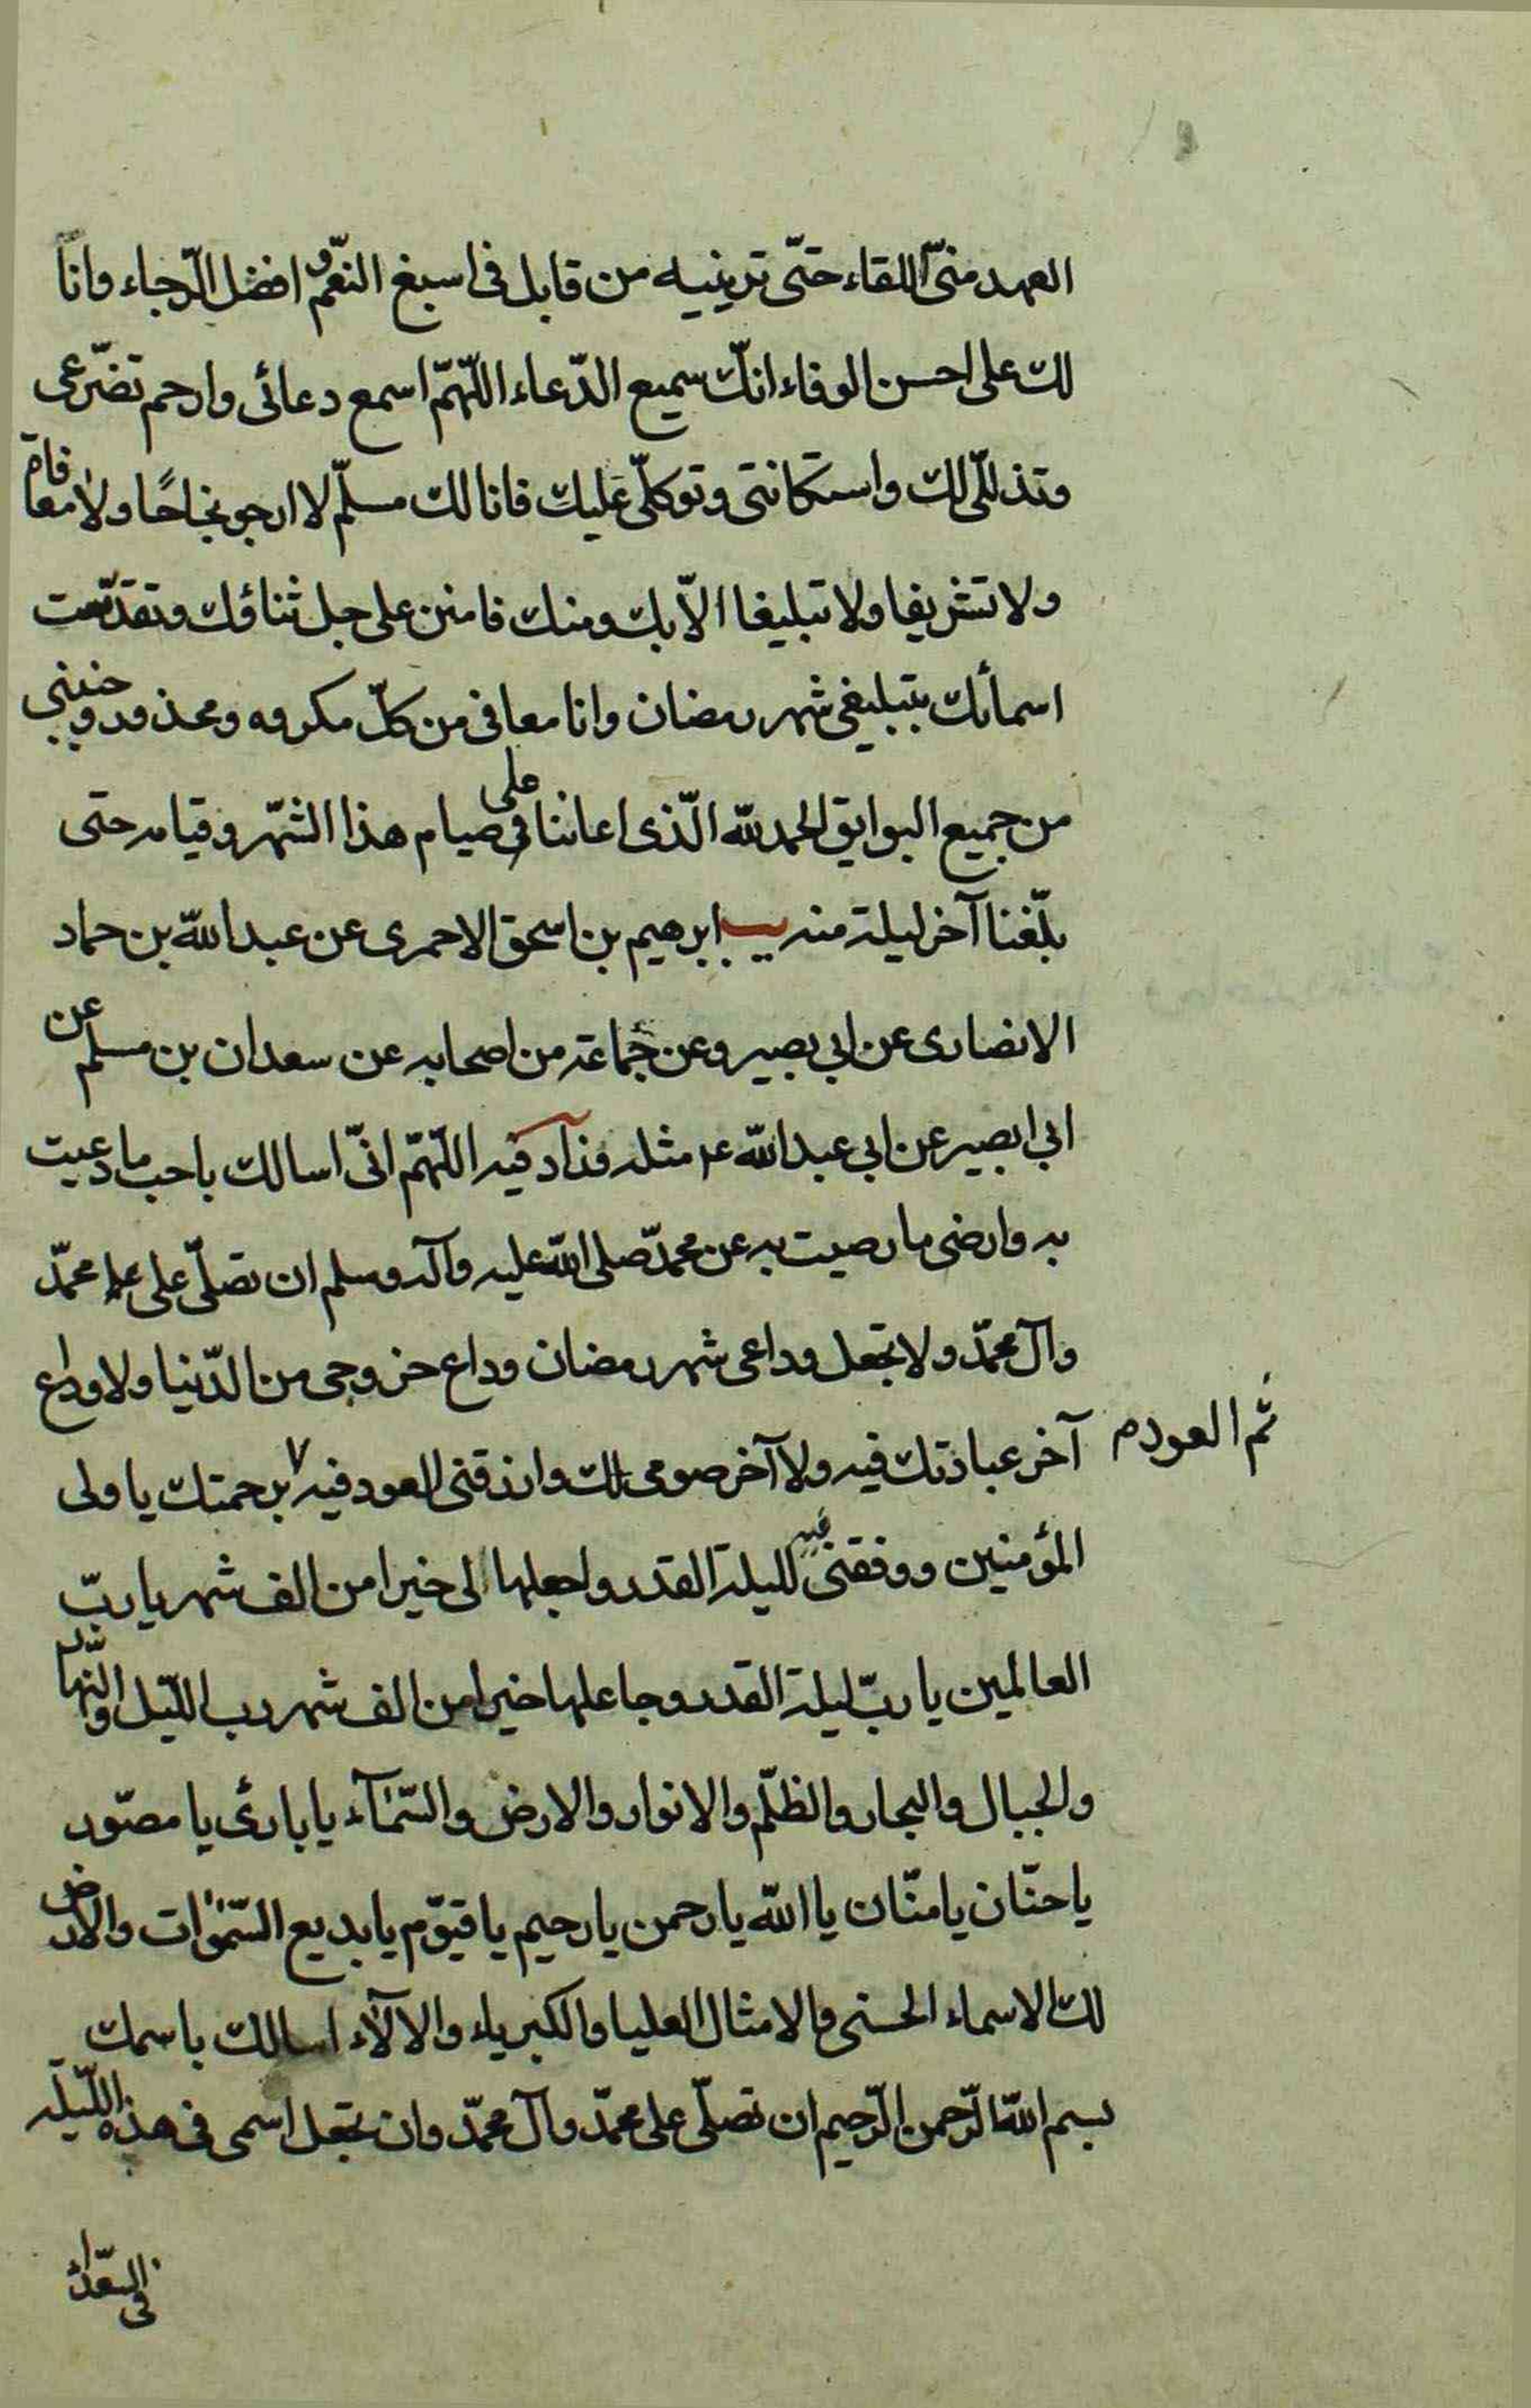 العهد منّى اللقاء حتّى ترينيه من قابل فى اسبغ النعّم و افضل الرّجاء وانّا
لك على احسن الوفاء انّك سميع الدّعاء اللّهمّ اسمع دعائى وارحم تضرّعى
وتذللّى لك واستكانتى وتوكلّى عليك فانا لك مسلّم لا ارجو نجاحًا ولا معافاة
ولا تشريفا ولا تبليغا الّا بك ومنك فامنن على جل ثناؤك وتقدّست
اسمائك بتبليغى شهر رمضان وانا معافى من كلّ مكروه ومحذور وجنبنى
من جميع البوايق الحمد لله الّذى اعاننا على صيام هذا الشّهر وقيامه حتى
بلّغنا آخر ليلة منه يب ابرهيم بن اسحق الاحمرى عن عبد الله بن حماد
الانصارى عن ابى بصير وعن جماعة من اصحابه عن سعدان بن مسلم عن
ابى بصير عن ابى عبد الله ع مثله وزاد فيه اللّهمّ انّى اسالك باحب ما دعيت
به وارضى ما رضيت به عن محمّد صلى الله عليه وآله وسلم ان تصلّى على محمّد
وآل محمّد ولا تجعل وداعى شهر رمضان وداع خروجى من الدّنيا ولا وداع
آخر عبادتك فيه ولا آخر صومى لك وارزقنى العود فيه برحمتك يا ولى
ثم العود م
المؤمنين ووفقنى فيه لليلة القدر واجعلها لى خيرا من الف شهر يا ربّ
العالمين يا ربّ ليلة القدر وجاعلها خيرا من الف شهر رب اللّيل والنّهار
والجبال والبحار والظلّم والانوار والارض والسّمآء يا بارئ يا مصّور
يا حنّان يا منّان يا الله يا رحمن يا رحيم يا قيوّم يا بديع السّموات والارض
لك الاسماء الحسنى والامثال العليا والكبرياء والآلآء اسالك باسمك
بسم الله الرّحمن الرّحيم ان تصلّى على محمّد وآل محمّد وان تجعل اسمى فى هذه اللّيلة
فى السّعداء